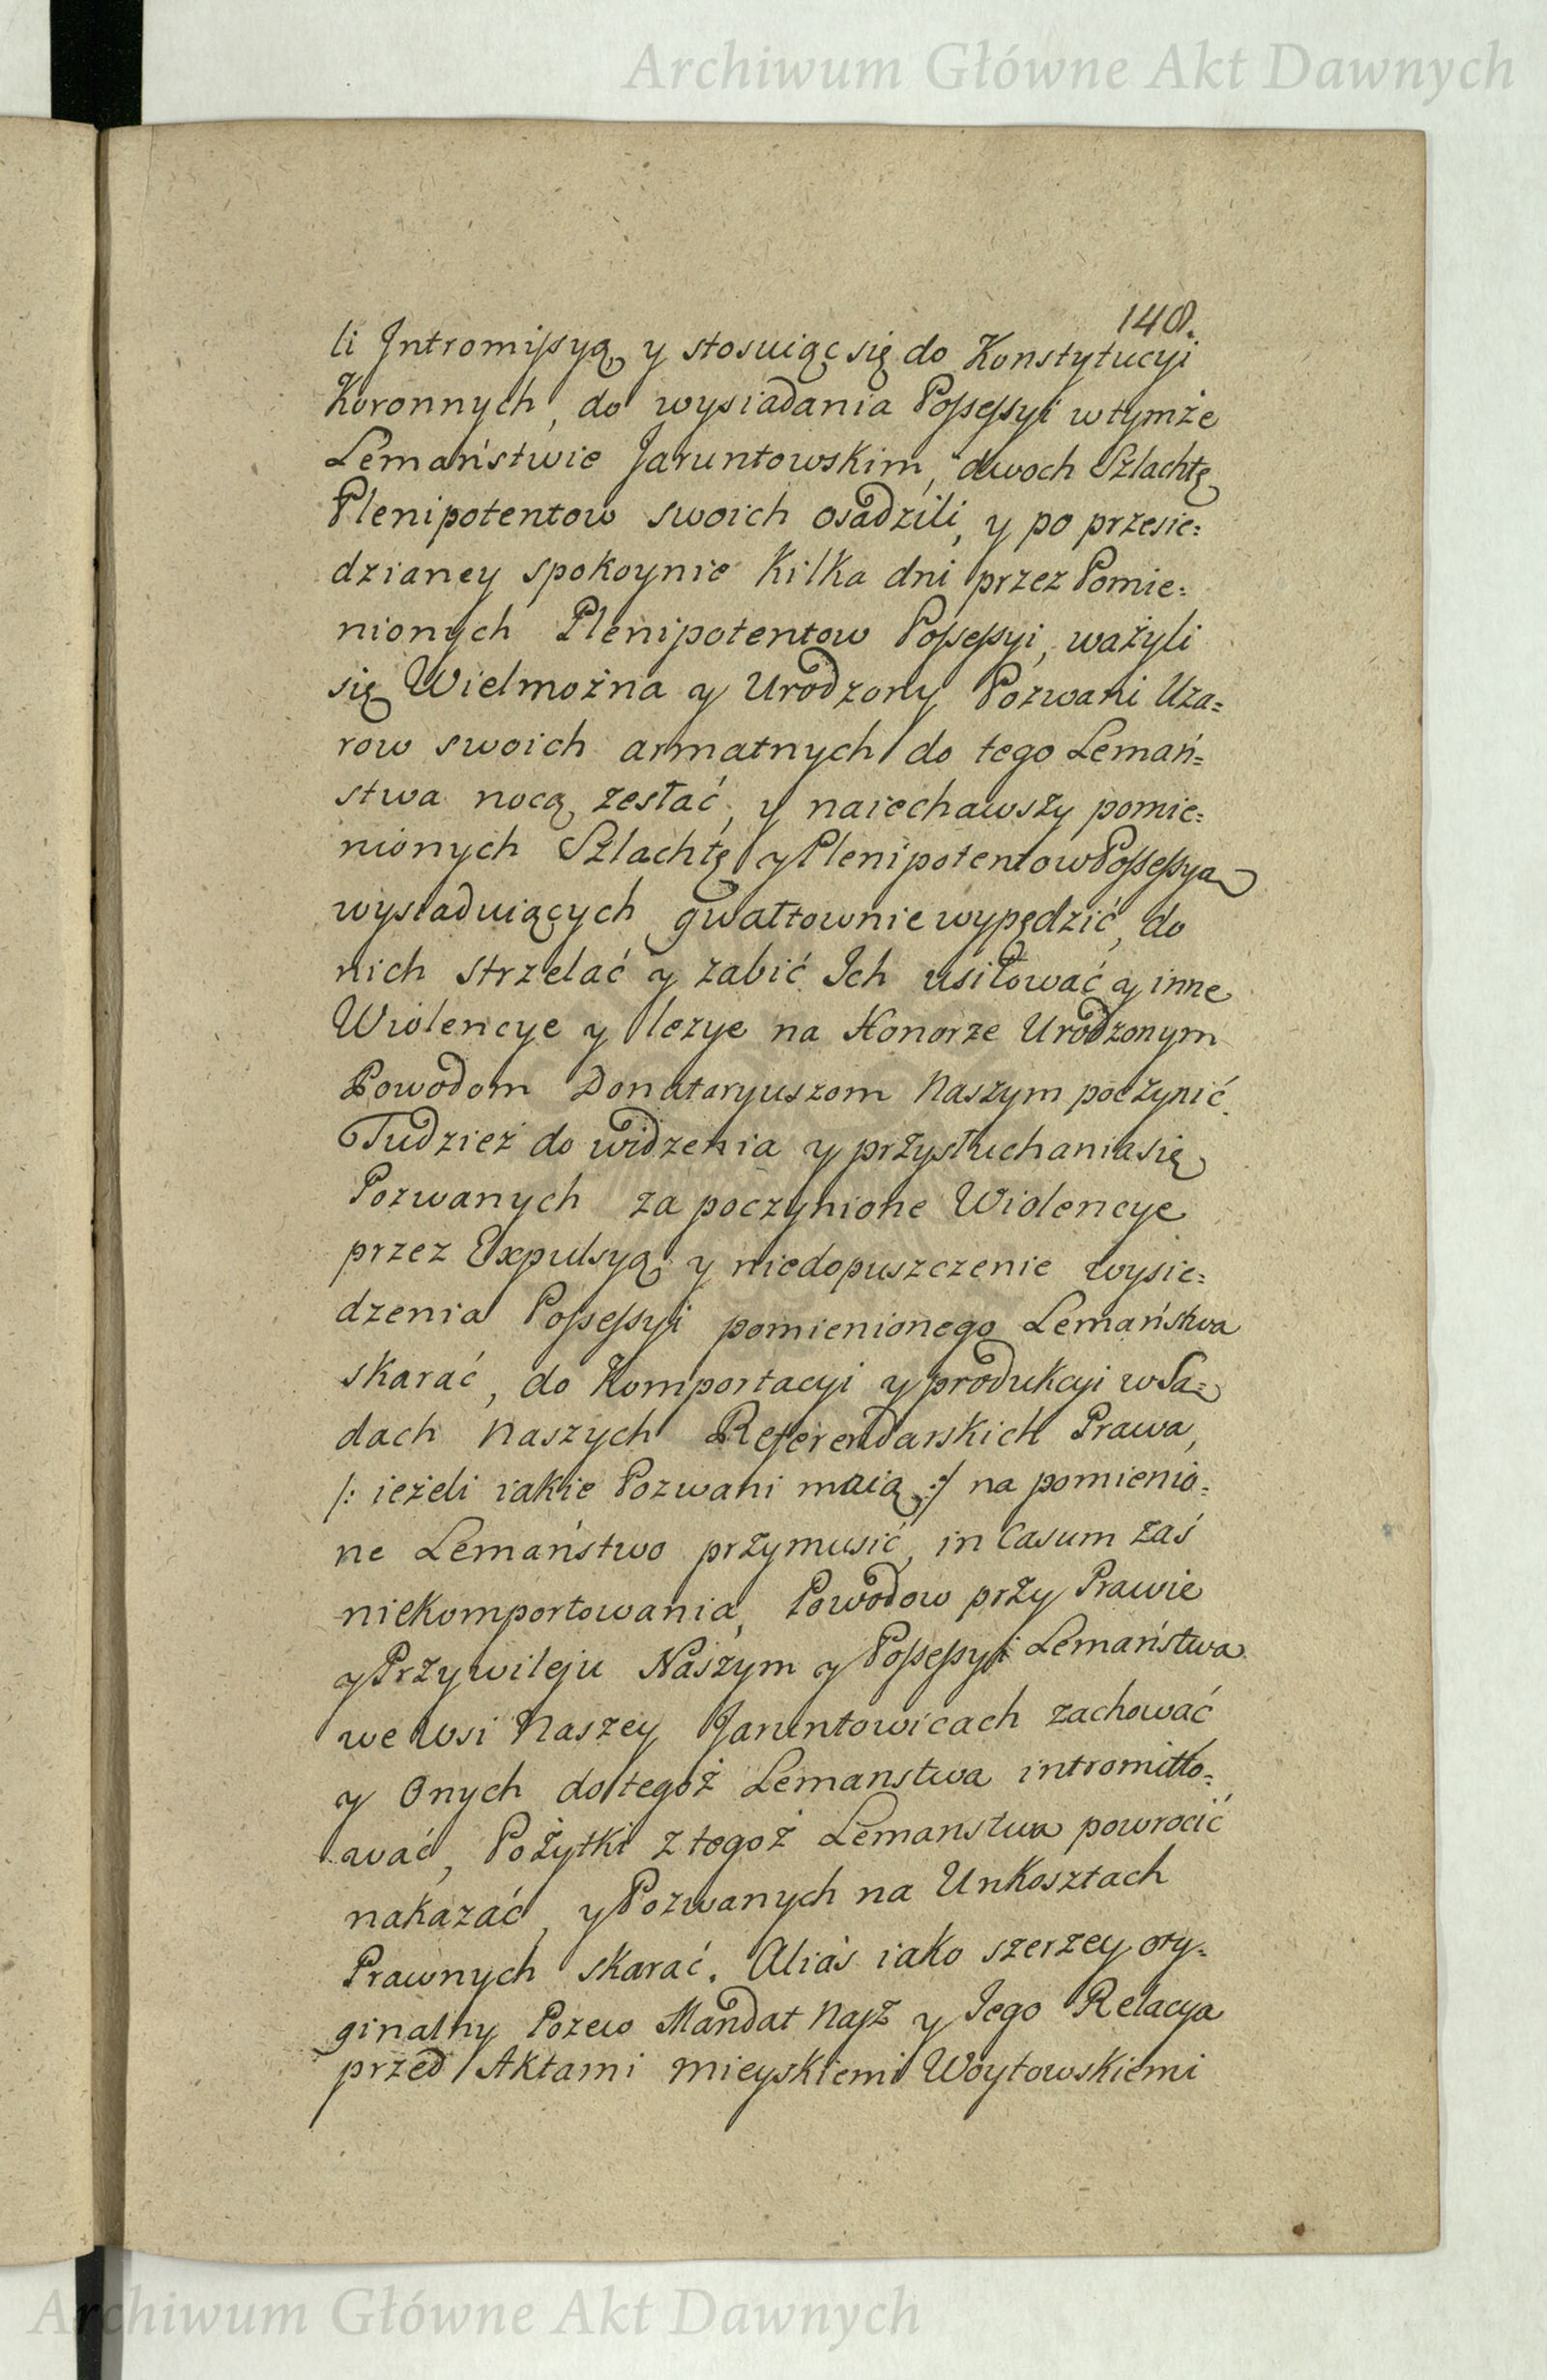 Archiwum Główne Akt Dawnych
148.
li Intromissyą y stosuiąc się do Konstytucyi
Koronnych, do wysiadania Possessyi w tymże
Lemaństwie Jaruntowskim, dwoch Szlachtę
Plenipotentow swoich osadzili, y po przesie=
dzianey spokoynie kilka dni przez Pomie=
nionych Plenipotentow Possessyi, ważyli
się Wielmożna y Urodzony Pozwani Uza=
row swoich armatnych do tego Lemań=
stwa nocą zesłać, y naiechawszy pomie=
nionych Szlachtę y Plenipotentow Possessya
wysiaduiących gwałtownie wypędzić, do
nich strzelać y zabić Ich usiłować y inne
Wiolencye y lezye na Honorze Urodzonym
Powodom Donataryuszom Naszym poczynić.
Tudzież do widzenia y przysłuchania się
Pozwanych za poczynione Wiolencye
przez Expulsyą y niedopuszczenie wysie=
dzenia Possessyi pomienionego Lemaństwa
skarać, do Komportacyi y produkcyi w Są=
dach Naszych Referendarskich Prawa,
/: ieżeli iakie Pozwani maią :/ na pomienio=
ne Lemaństwo przymusić, in Casum zaś
niekomportowania, Powodow przy Prawie
y Przywileju Naszym y Possessyi Lemaństwa
we Wsi Naszey Jaruntowicach zachować
y Onych do tegoż Lemanstwa intromitto=
wać, Pożytki z tegoż Lemanstwa powrocić
nakazać, y Pozwanych na Unkosztach
Prawnych skarać. Alias iako szerzey ory=
ginalny Pozew Mandat Nasz y Jego Relacya
przed Aktami Mieyskiemi Woytowskiemi
Archiwum Główne Akt Dawnych